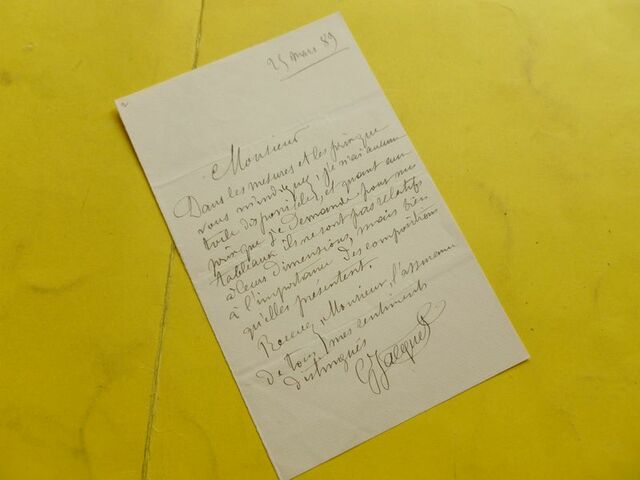 25 mars 89
Monsieur
Dans les mesures et les prix que
vous m'indiquez, je n'ai aucune
toile disponible, et quant aux
prix que je demande pour mes
tableaux ils ne sont pas relatifs
à leurs dimensions, mais bien
à l'importance des compositions
qu'elles présentent.
Recevez, Monsieur, l'assurance
de tous mes sentiments
distingués
G Jacquet